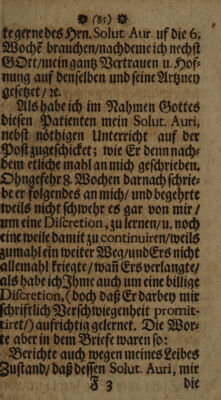 (85)
te gerne des Hrn. Solut. Aur. uf die 6.
Wochẽ brauchen/nachdeme ich nechst
GOtt/mein gantz Vertrauen u. Hof-
nung auf denselben und seine Artzney
gesetzet/ ꝛc.
Als habe ich im Nahmen Gottes
diesen Patienten mein Solut. Auri,
nebst nöthigen Unterricht auf der
Post zugeschicket; wie Er denn nach-
dem etliche mahl an mich geschrieben.
Ohngefehr 8. Wochen darnach schrie-
be er folgendes an mich/ und begehrte
weils nicht schwehr es gar von mir/
um eine Discretion, zu lernen/ u. noch
eine weile damit zu continuiren/weils
zumahl ein weiter Weg/und Ers nicht
allemahl kriegte/wañ Ers verlangte/
als habe ich Ihme auch um eine billige
Discretion, (doch daß Er darbey mir
schriftlich Verschwiegenheit promit-
tiret/ aufrichtig gelernet. Die Wor-
te aber in dem Briefe waren so:
Berichte auch wegen meines Leibes
Zustand/ daß dessen Solut. Auri, mir
F 3 die